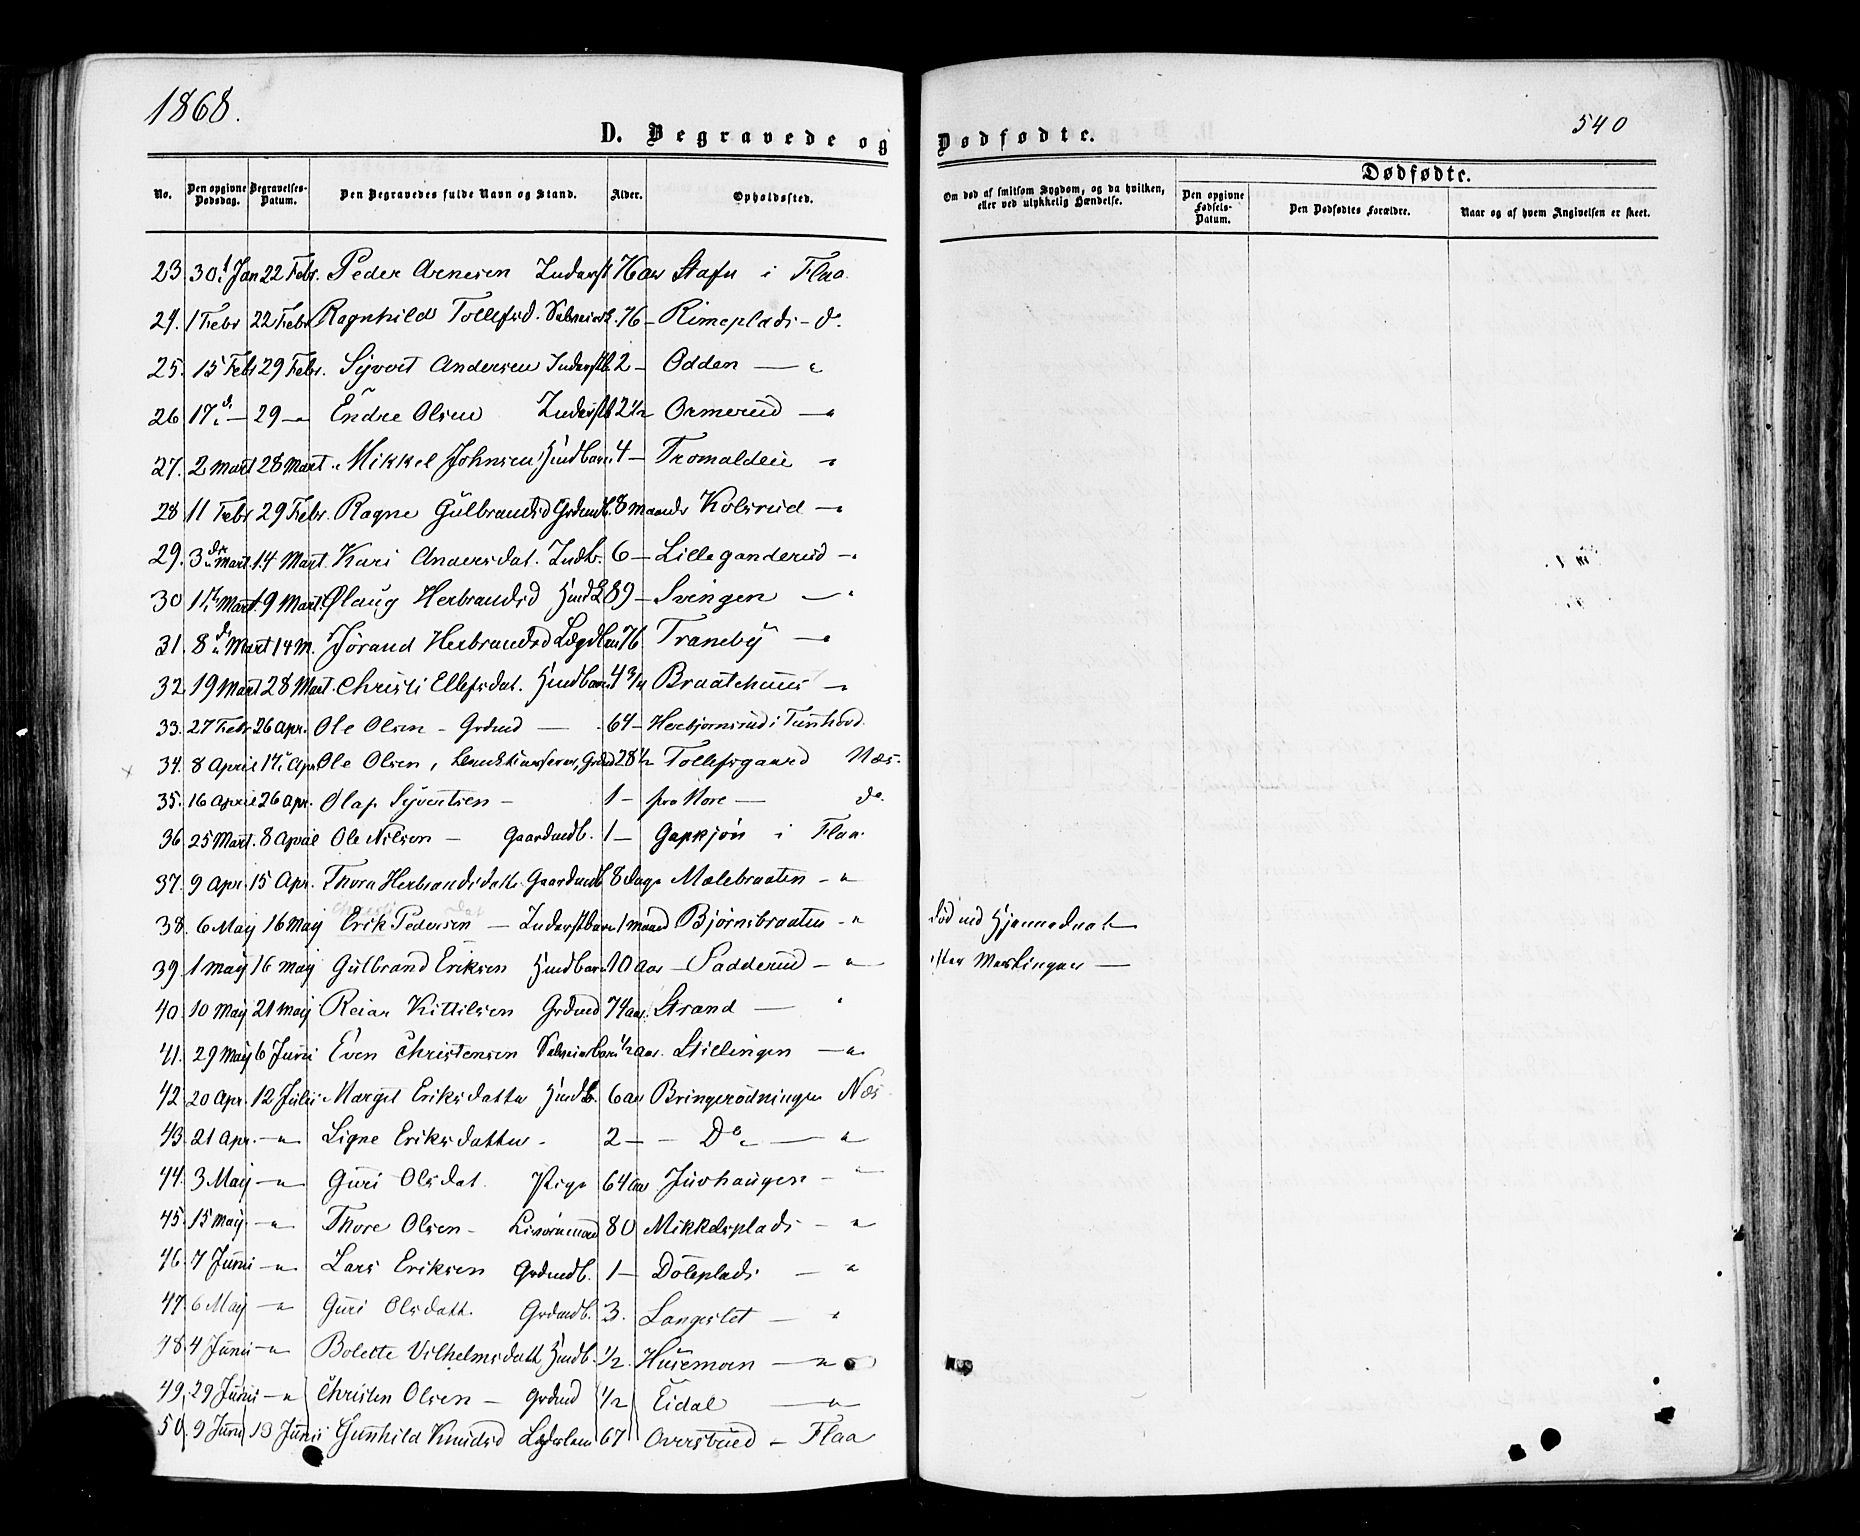 1868.
540
D. Begravede og Dødfødte.
No. Den opgivne Dødsdag. Begravelses-Datum. Den Begravedes fulde Navn og Stand. Alder. Opholdssted. Om død af smitsom Sygdom, og da hvilken, eller ved ulykkelig Hændelse. Dødfødte. Den opgivne Fødsels-Datum. Den Dødfødtes Forældre. Naar og af hvem Angivelsen er skeet.
23. 30 Jan 22 Febr. Peder Arnesen Inderst 76 aar Stafn i Flaa.
24. 1 Febr 22 Febr Ragnhild Tollefsd. 76 – Rimeplads – do.
25. 15 Febr 29 Febr. Syvert Andersen Inderstb. 2 – Odden — "
26 17 d. – 29 – " Endre Olsen Inderstb 2 1/2 Ormerud – "
27. 2 Mart 28 Mart. Mikkel Johnsen Husmdbarn 4 – Tromalden – "
28 11 Febr 29 Febr. Ragne Gulbrandsd Grdmdb. 8 maander Kolsrud – "
29. 3 Mart. 14 Mart. Kari Andersdat. Indb. 6 – Lilleganderud – "
30 Mart. 9 Mart. Ølaug Herbrandsd 89 – Svingen — "
31. 8 Mart 14 M. Jørand Herbrandsd Lægdlem 76 Traneby — "
32. 19 Mart 28 Mart. Christi Ellefsdat. 4 3/4 Braatehuus – "
33. 27 Febr 26 Apr. Ole Olsen – Grdmd — 64 – Herbjørnsrud i Tunhovd.
34. 8 April Apr. Ole Olsen, 28 1/2 Tollefsgaard Næs.
35. 16 April 26 Apr. Olaf Syvertsen – 1 – fra Nore — do.
36 25 Mart. 8 April Ole Nilsen – Gaardmdb. 1 – Gapkjøn i Flaa.
37. 9 Apr. 15 Apr. Thora Herbrandsdatt. Gaardmdb 8 dage Malebraaten – "
38. 6 Maij 16 Maij Erik Pedersen — Inderstbarn 1 maaned Bjørnebraaten – " død ved Hjemmedaab
39. 1 Maij 16 Maij Gulbrand Eriksen 10 aar – Sadderud – " efter Meslinger —
40. 10 Maij 21 Maij Reiar Kittilsen Grdmd 74 aar. Strand — "
41. 29 Maij 6 Junii Even Christensen 1/2 aar. Stillingen — "
42. 20 Apr. 12 Julii Margit Eriksdatter 6 aar Bringerødningen Næs
43. 21 Apr. – " Signe Eriksdatter – 2 – – Do — "
44. 3 Maij – " Guri Olsdat. Pige 64 aar Juvhaugen – "
45. 15 Maij. – " Thore Olsen – 80 Mikkelsplads – "
46. 7 Junii – " Lars Eriksen Grdmdb. 1 – Døleplads — "
47. 6 Maij – " Guri Olsdatt. Grdmdb. 3. Langeslet — "
48. 4 Junii – " Bolette Vilhelmsdatt Husmdb. 1/2. Husemoen — "
49. 29 Junii – " Christen Olsen – Grdmd 1/2 Eidal — "
50. 9 Junii Junii Gunhild Knudsd Lægdslem 67 – Flaa